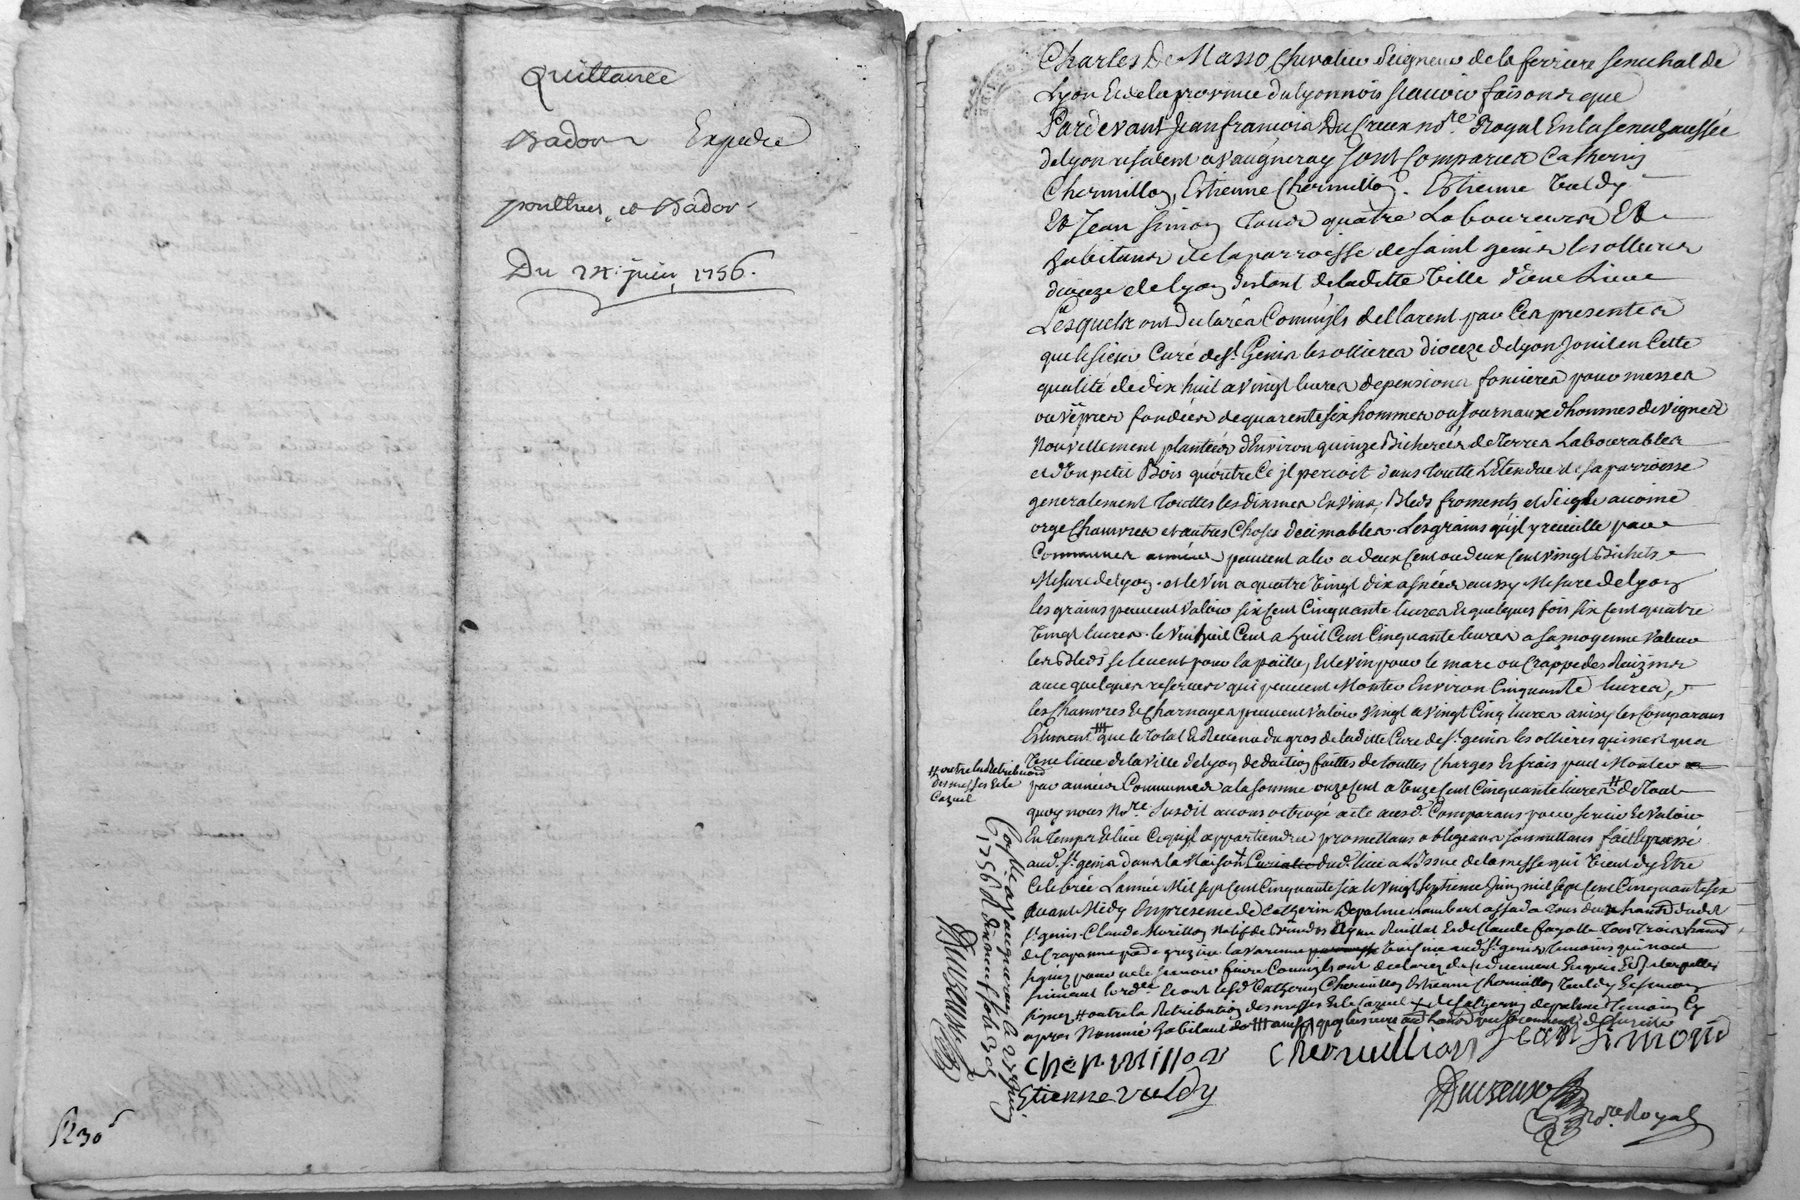 Quittance
Badon Expedié
ponthus, et Badon
Du juin, 1756.
R 30s
Charles De Masso Chevalier Seigneur de la ferriere senechal de
Lyon Et de la province du lyonnois scavoir faisons que
Pardevant Jean francois Ducreux no.re Royal En la senechaussée
de lyon resident a vaugneray sont Comparus Catherin
Chermillon, Estienne Chermillon. Estienne Vuldy
Et Jean Simon Tous quatre Laboureurs Et
habitans de la parroisse de saint genis les ollieres
dioceze de lyon distant de laditte Ville d'une Lieue
Lesquels ont Declarés Comm'ils declarent par Ces presentes
que le sieur Curé de st. Genis les ollieres Dioceze de lyon Jouit en Cette
qualité de dix huit a vingt livres de pensions foncieres pour messes
ou vêpres fondées de quarente six hommes ou Journaux d'hommes de vignes
Nouvellement plantées d'Environ quinze Bicherées de Terres Labourables
et d'un petit Bois qu'outre Ce jl percoit dans toutte L'Etendue de sa parroisse
generalement touttes les dixmes En vins, Bleds froments et Seigle avoine
orge Chanvres et autres Choses decimables. Les grains qu'jl y recueille par
Communes années peuvent aler a deux Cent ou deux Cent vingt Bichets
Mesure de lyon. et le vin a quatre Vingt dix asnées aussy Mesure de lyon
les grains peuvent valoir six Cent Cinquante livres Et quelques fois six Cent quatre
Vingt livres. le vin huit Cent a huit Cent Cinquante livres a sa moyenne valeur
les Bleds se levent pour la paille, Et le vin pour le marc ou Crappe des Raizins
avec quelques reserves qui peuvent Monter Environ Cinquante livres,
les Chanvres Et Charnages peuvent valoir Vingt a vingt Cinq livres ainsy les Comparans
Estiment que le total Et Revenu du gros de laditte Cure de st. genis les ollieres qui n'est qu'a
Une lieue de la ville de lyon deduction faittes de touttes Charges Et frais peut Monter
par années Communes a la somme onze Cent a onze Cent Cinquante livres # de Tout
# outre la Retribution
des messes Et le
Cazuel
quoy nous No.re Susdit avons octroyé acte auxd. Comparans pour servir Et valoir
En Temps Et lieu Ce qu'jl appartiendra promettans obligeans soumettans fait Et passé
aud. st. genis dans la Maison Curialle dud. lieu a L'issue de la messe qui Vient d'y Etre
Celebrée L'année Mil sept Cent Cinquante six le vingt septieme Juin mil sept Cent Cinquante six
avant Midy En presence de Catherin Depalme
st. genis. Claude Morillon Natif de Et de Claude fayolle tous trois
de Craponne
signer Outre la Retribution des messes Et le Cazuel
apres Nommé habitant
chermillon Chermillion Jean Simond
Etienne vuldy
Ducreux
no.re Royal
Conllé a vaugneray le
1756 R dix neuf sols
Ducreux